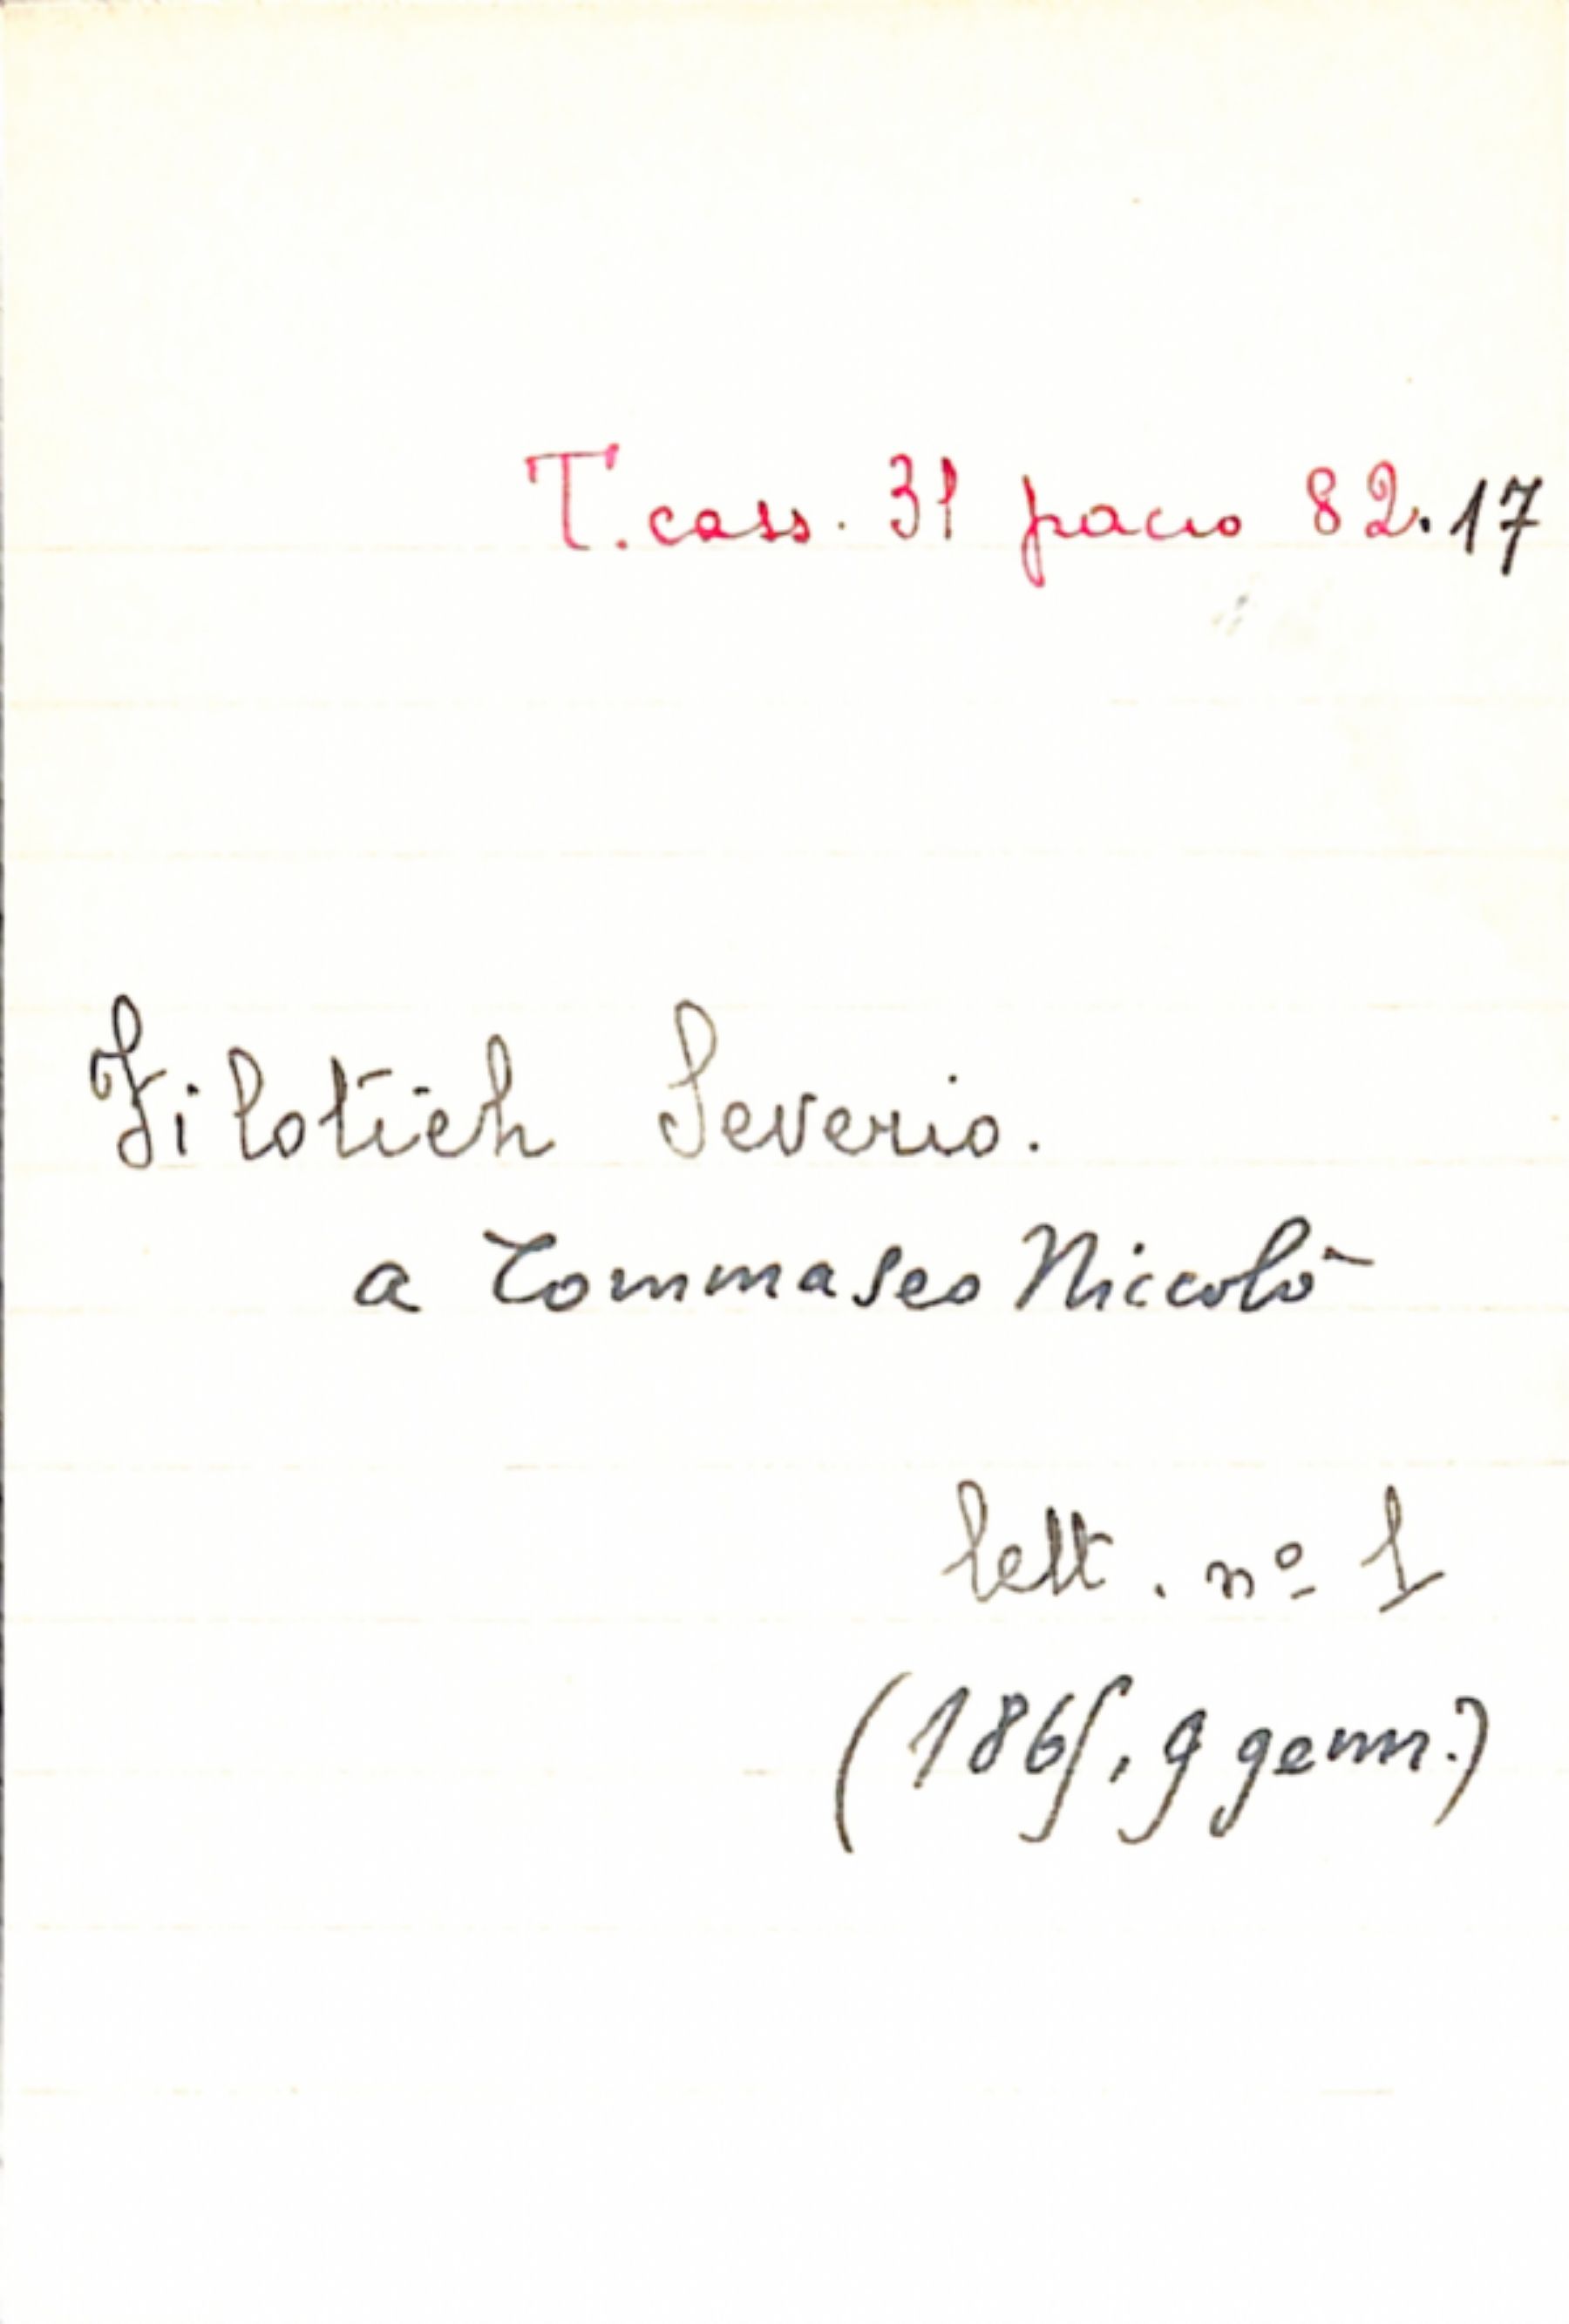 T. cass. 31 pacco 82.17
Filotich Severio.
a Tommaseo Niccolò
lett. nº 1
(1865, 9 genn.)